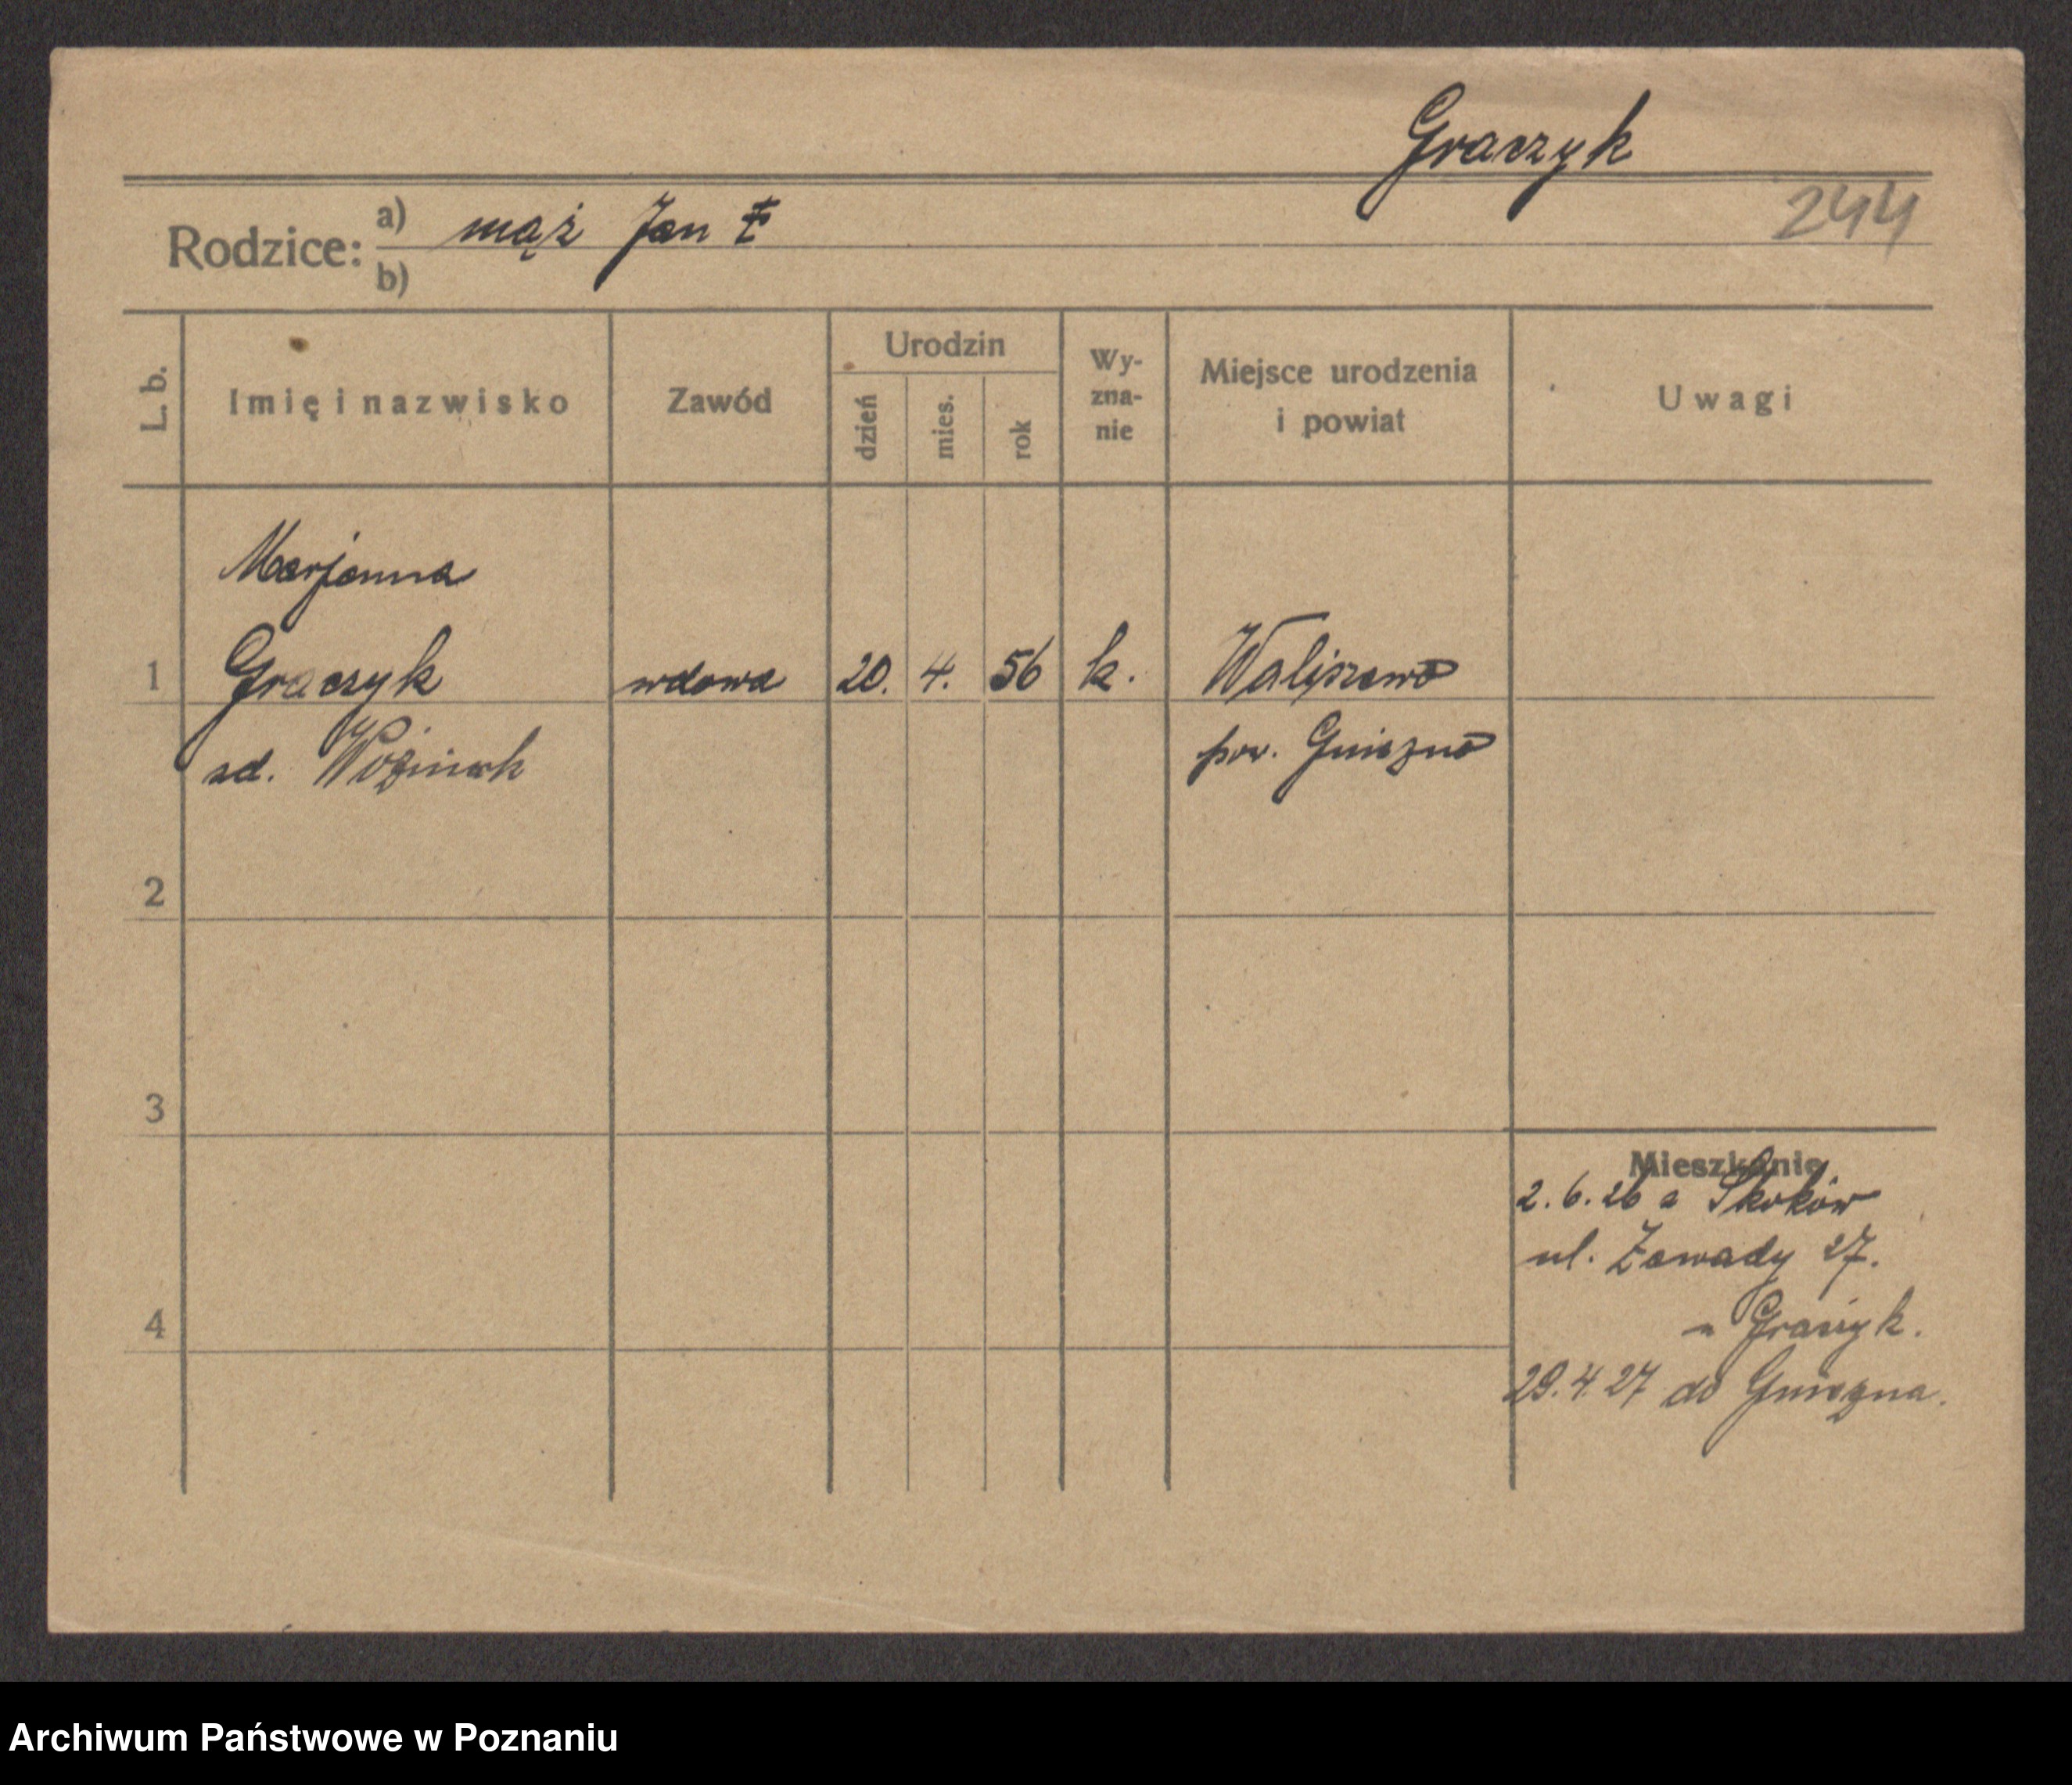 Graczyk
244
Rodzice: a) mąż Jan ‡
b)
L. b. Imię i nazwisko Zawód Urodzin dzień mies. rok Wy-zna-nie Miejsce urodzenia i powiat Uwagi
Marjanna
1 Graczyk wdowa 20. 4. 56 k. Waliszewo
zd. Woźniak pow. Gniezno
2
3
Mieszkanie
2.6.26 z Skoków
ul. Zawady 27.
4 u Graczyk.
29.4.27 do Gniezna.
Archiwum Państwowe w Poznaniu